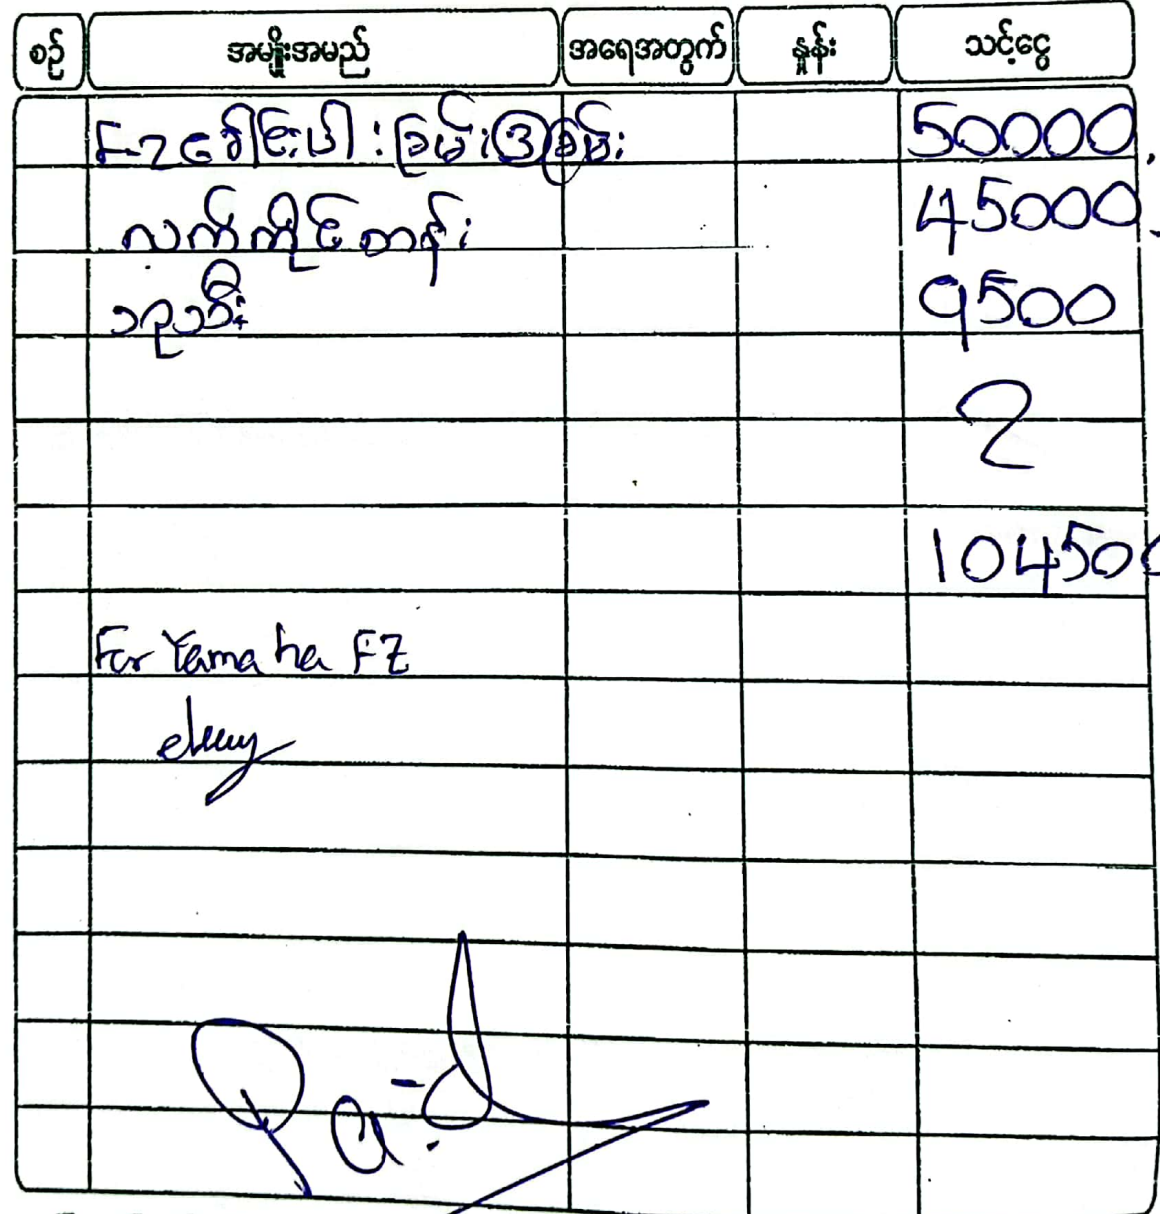 စဉ် အမျိုးအမည် အရေအတွက် နှုန်း သင့်ငွေ
50000
လက်ကိုင်တန်း 45000
9500
2
104500
For Yamaha FZ
Paid